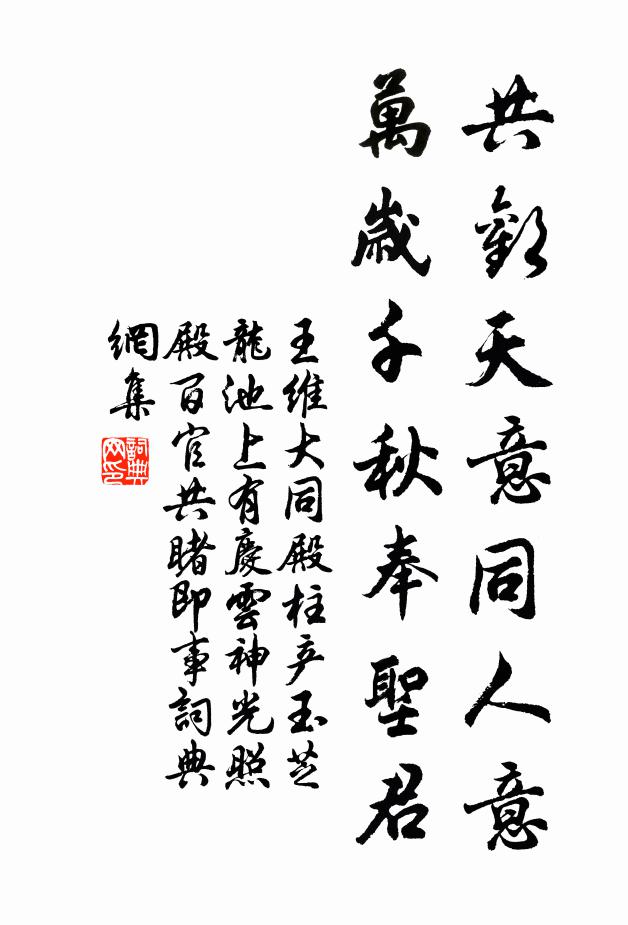 共歡天意同人意
萬歲千秋奉聖君
王維大同殿柱产玉芝
龍池上有慶雲神光照
殿百官共睹即事詞典
網集
詞典網印